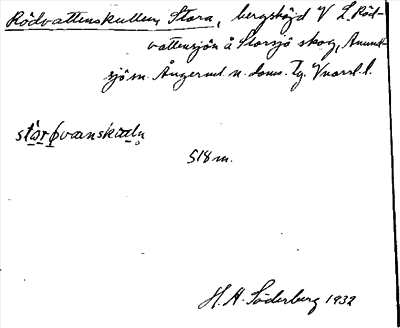 Rödvattenskullen, Stora, bergshöjd V L. Röd-
vattensjön å Storsjö skog, Anund-
sjö sn. Ångerml. n. doms. Tg. Vnorrl. l.
518 m.
H. A. Söderberg 1932